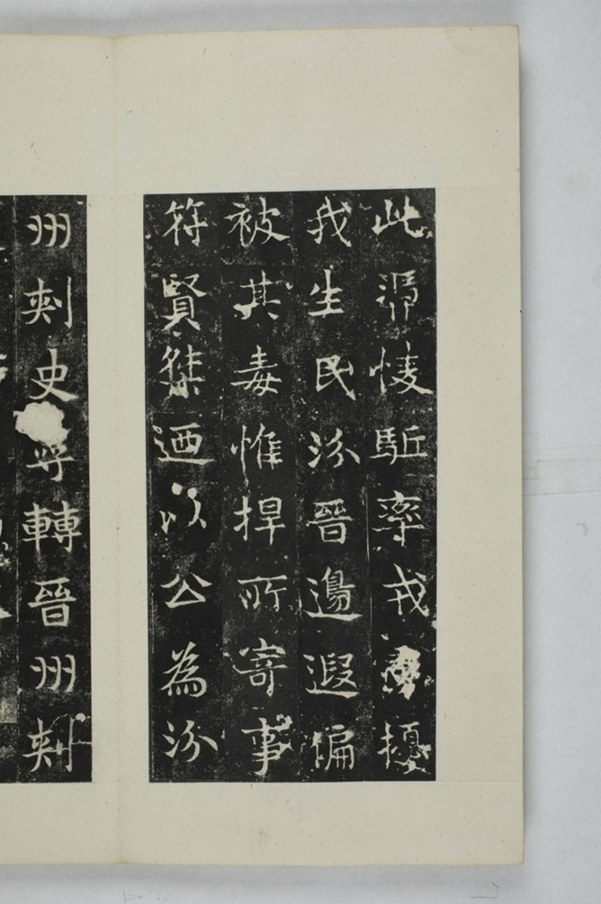 此駈率戎擾
我生民汾晉邊遐偏
被其毒惟捍所寄事
符賢桀迺以公為汾
州刾史尋轉晉州刾